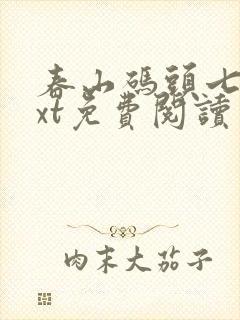 春山碼頭七
xt免費閱讀
肉末大茄子